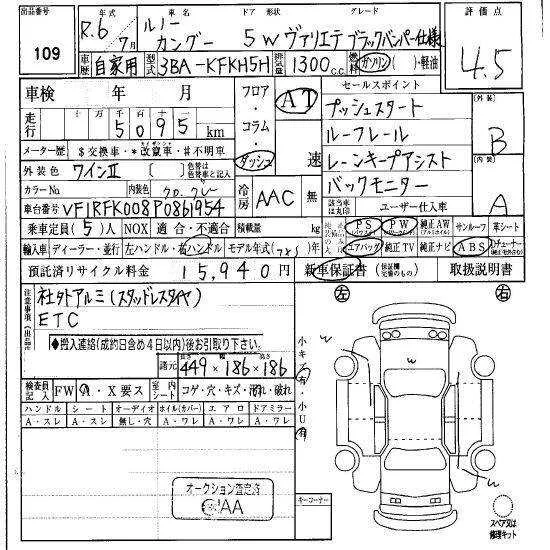 出品番号 109
年式 R.6年 7月
車名 ルノー カングー
ドア 形状 5W
グレード ヴァリエテ ブラックバンパー仕様
評価点 4.5
車歴 自家用
型式 3BA-KFKH5H
排気量 1300 c.c.
燃料 ガソリン・( )・軽油
車検 年 月
フロア・コラム・ダッシュ
AT 速
セールスポイント
プッシュスタート
ルーフレール
レーンキープアシスト
バックモニター
外装 B
内装 A
走行 十 万 千 百 十
5095 km
メーター歴 $交換車・*改竄車・#不明車
外装色 ワインⅡ 色替は色替車と記入
カラーNo. 内装色 クロ.グレー
冷房 AAC 無
該当車は丸印 ユーザー仕入車
車台番号 VF1RFK008P0861954
乗車定員 (5)人 NOX 適合・不適合 積載量 kg
PS PW 純正AW サンルーフ 革シート
輸入車 ディーラー・並行 左ハンドル・右ハンドル モデル年式( )年
エアバッグ 純正TV 純正ナビ ABS
預託済リサイクル料金 15,940円
新車保証書 取扱説明書
注意事項
社外アルミ(スタッドレスタイヤ)
ETC
●搬入連絡(成約日含め4日以内)後お引取り下さい。
諸元 長さ 449×幅 186×高さ 186
検査員記入 FW A・X要ス 室内シート コゲ・穴・キズ・汚れ・破れ
ハンドル シート オーディオ ホイル(カバー) エアロ ドアミラー
A・スレ A・スレ 無し・穴 A・ワレ A・ワレ A・ワレ
小キズ有・小U有
左 右
w
w
w
w
オークション査定済
AA
キーコーナー
スペア又は修理キット